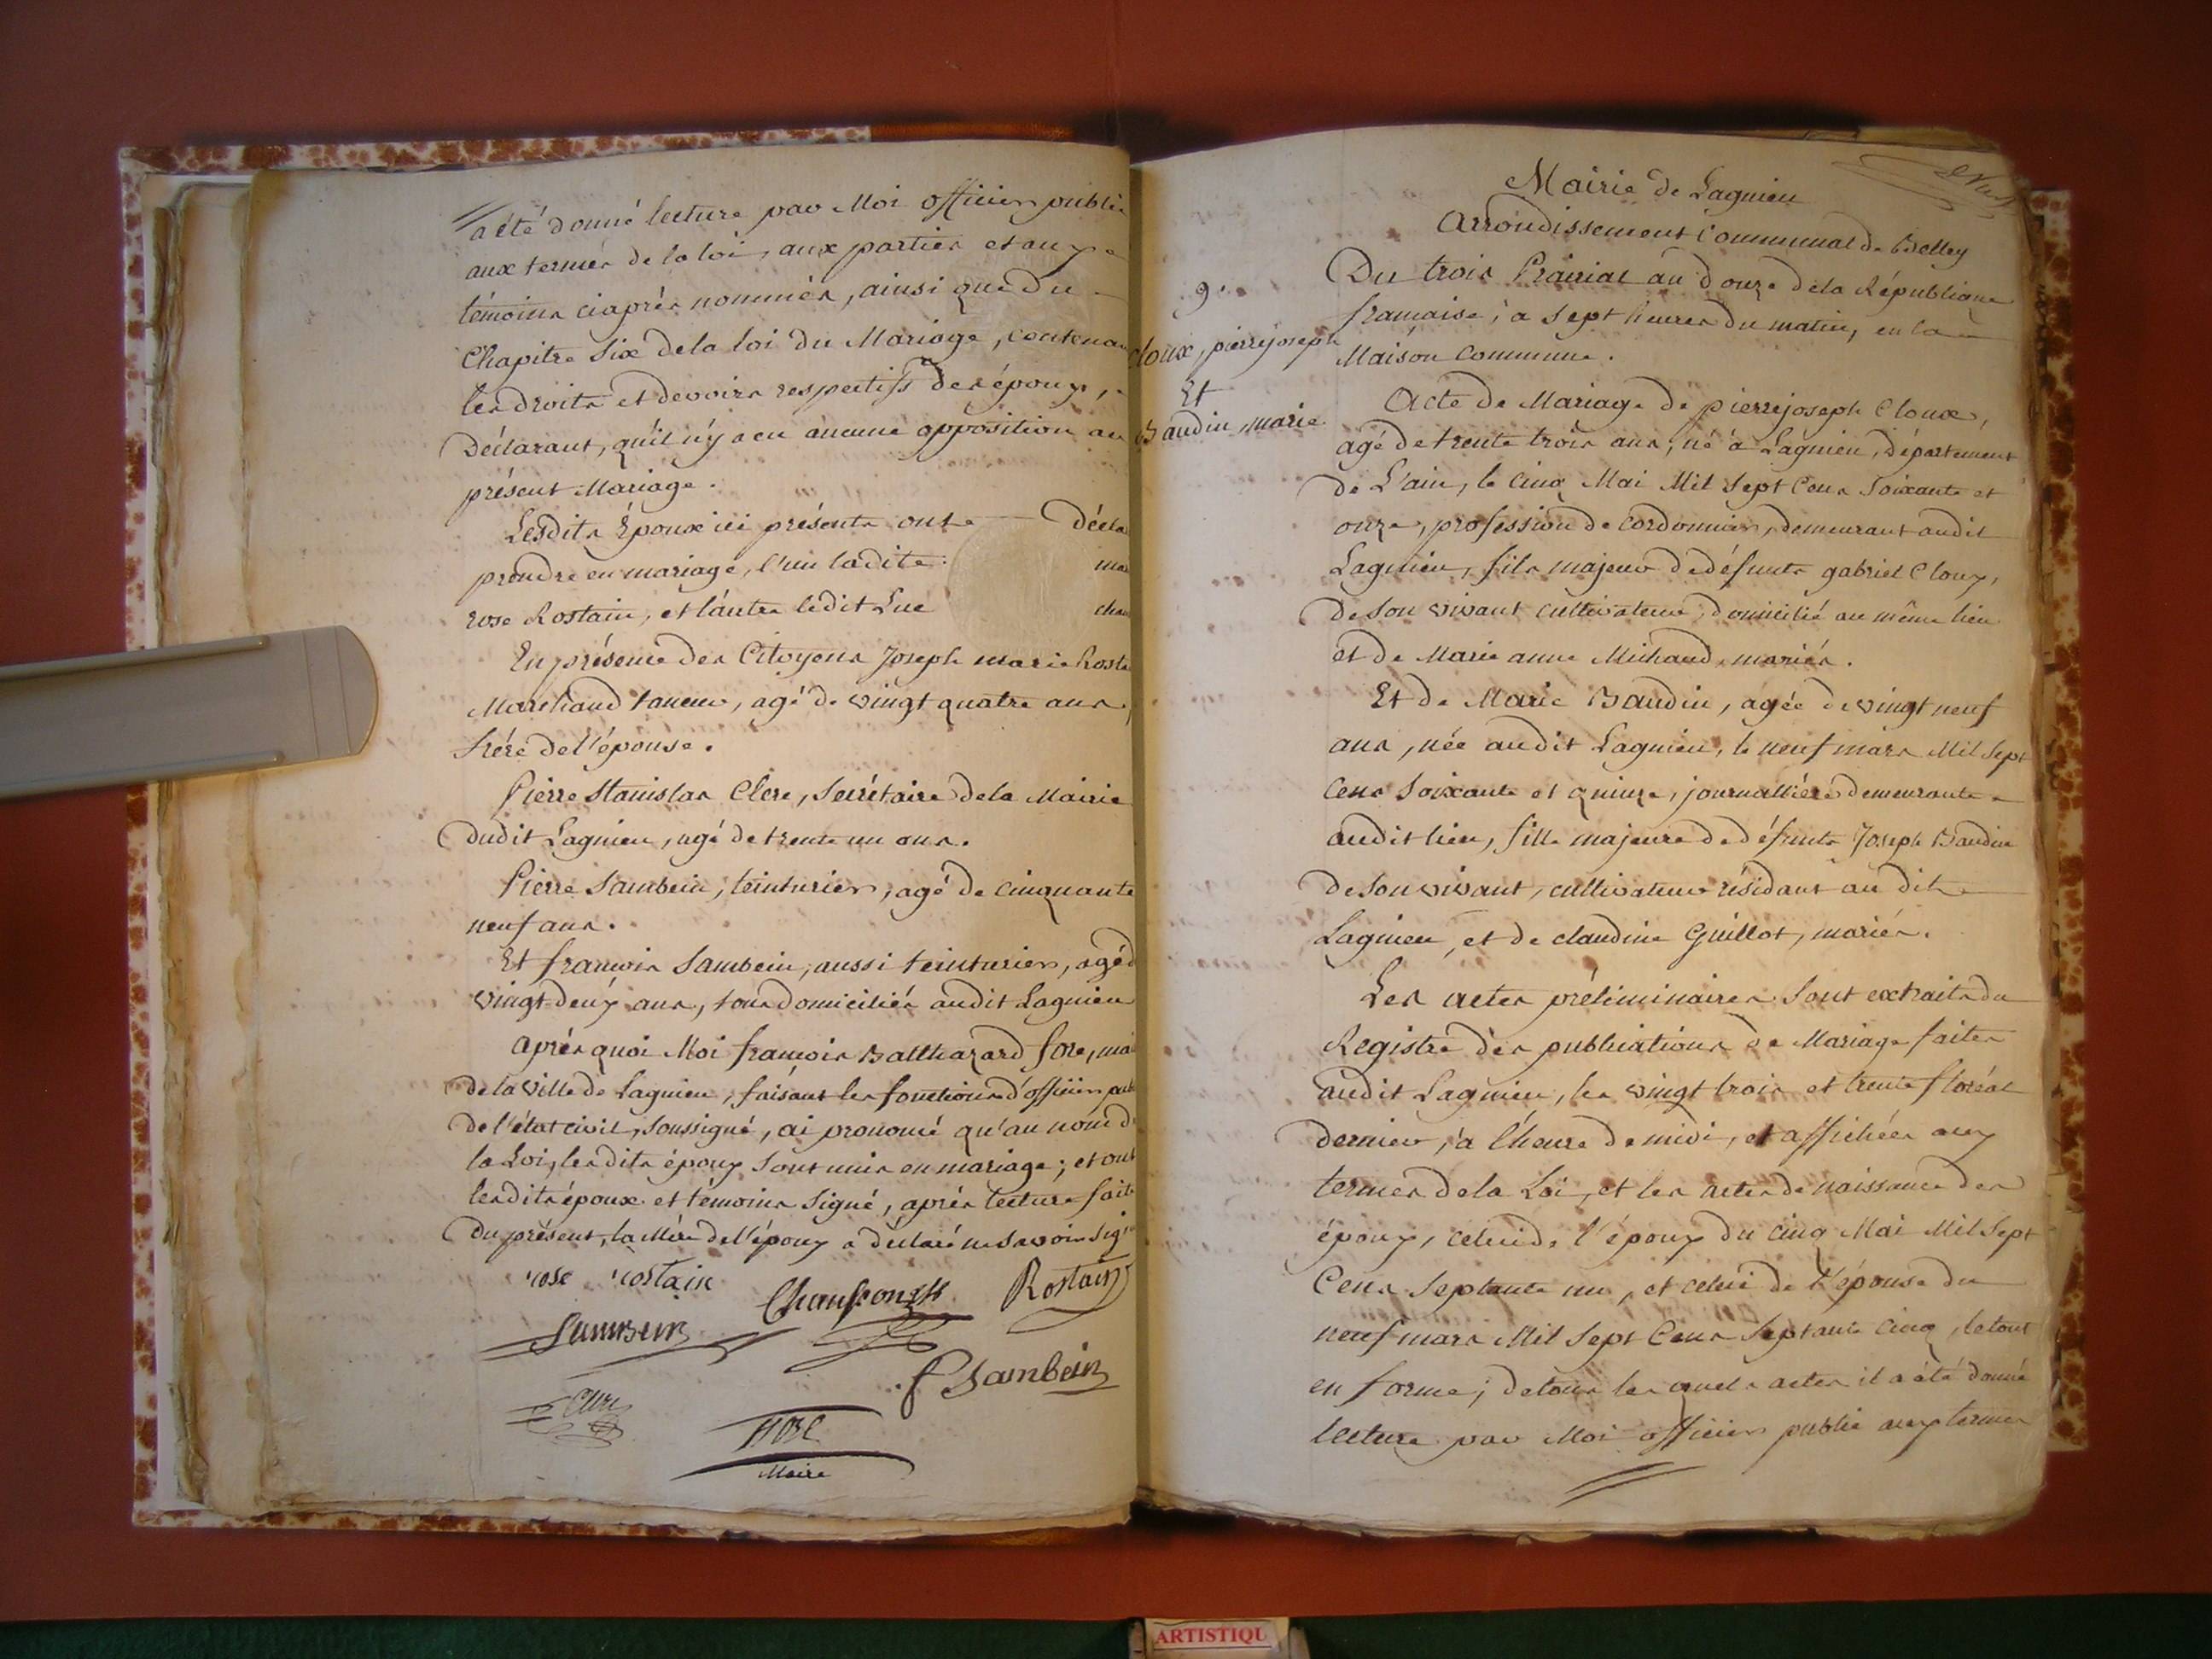 a été donné lecture par Moi officier public
aux termes de la loi, aux parties et aux
témoins ci après nommés, ainsi que du
Chapitre Six de la loi du Mariage, contenan
les droits et devoirs respectifs des époux,
Déclarant, qu'il n'y a eu aucune opposition au
présent Mariage.
Lesdits Époux ici présents ont décla
prendre en mariage, l'un ladite mar
rose Rostain, et l'autre ledit Luc chau
En présence des Citoyens Joseph marie Rosta
Marchand taneur, agé de vingt quatre ans,
frère de l'épouse.
Pierre Stanislas Clerc, Secrétaire de la Mairie
dudit Lagnieu, agé de trente un ans.
Pierre Sambein, teinturier, agé de cinquante
neuf ans.
Et françois Sambein, aussi teinturier, agé d
vingt deux ans, tous domiciliés audit Lagnieu
après quoi Moi françois Balthazard fore, mai
de la ville de Lagnieu, faisant les fonctions d'officier pub
de l'état civil, soussigné, ai prononcé qu'au nom d
la Loi, lesdits époux sont unis en mariage; et ont
lesdits époux et témoins signé, après lecture faite
du présent, la Mère de l'époux a déclaré ne savoir sign
rose rostain Rostain
Sambein
f Sambein
Maire
9e.
Cloux, pierre joseph
Et
Baudin, marie.
Mairie de Lagnieu
Arrondissement Communal de Belley
Du trois Prairial an douze de la République
française, à sept heures du matin, en la
Maison Commune.
Acte de Mariage de pierre joseph Cloux,
agé de trente trois ans, né à Lagnieu, département
de L'ain, le cinq Mai Mil Sept Cens Soixante et
onze, profession de Cordonnier, demeurant audit
Lagnieu, fils majeur de défunts gabriel Cloux,
de son vivant cultivateur, domicilié au même lieu
et de Marie anne Michaud, mariés.
Et de Marie Baudin, agée de vingt neuf
ans, née audit Lagnieu, le neuf mars Mil Sept
Cens Soixante et quinze, journallière demeurante
audit lieu, fille majeure de défunts Joseph Baudin
de son vivant, cultivateur résidant au dit
Lagnieu, et de claudine Guillot, mariés.
Les actes préliminaires sont extraits du
Registre des publications de Mariage faites
audit Lagnieu, les vingt trois et trente floréal
dernier, à l'heure de midi, et affichées aux
termes de la Loi, et les actes de naissance des
époux, celui de l'époux du cinq Mai Mil Sept
Cens Septante un, et celui de l'épouse du
neuf mars Mil Sept Cens Septante cinq, le tout
en forme; de tous les quels actes il a été donné
lecture par Moi officier public aux termes
ARTISTIQU